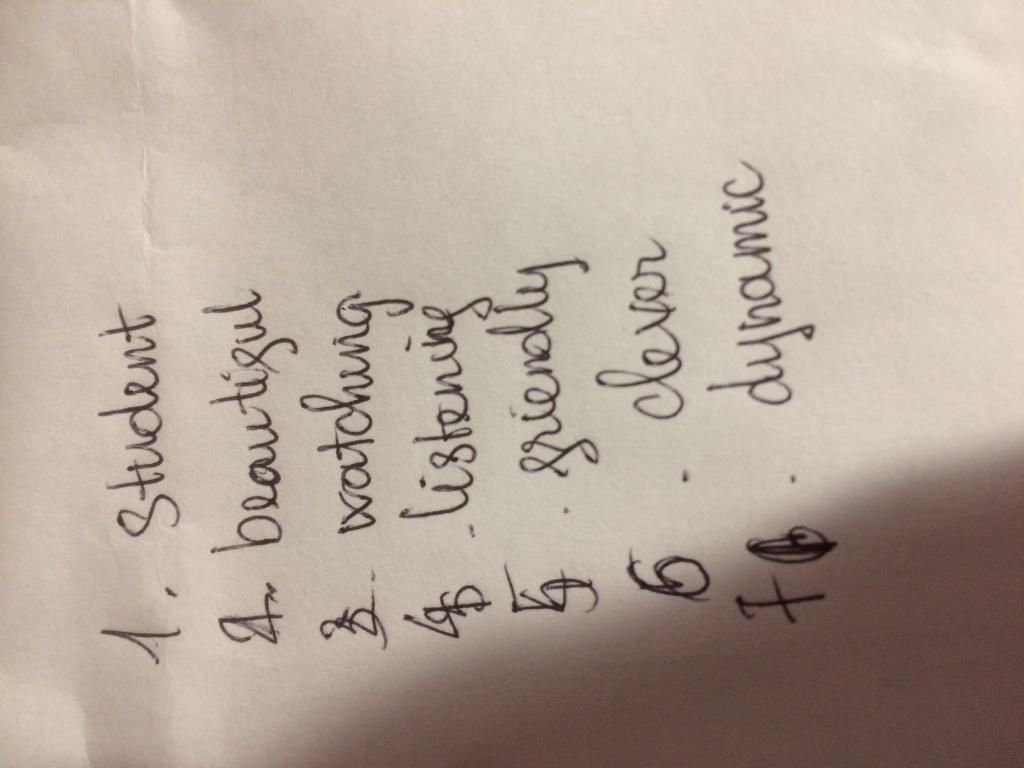 1. Student
2. beautiful
3. watching
4. listening
5. friendly
6. clever
7. dynamic